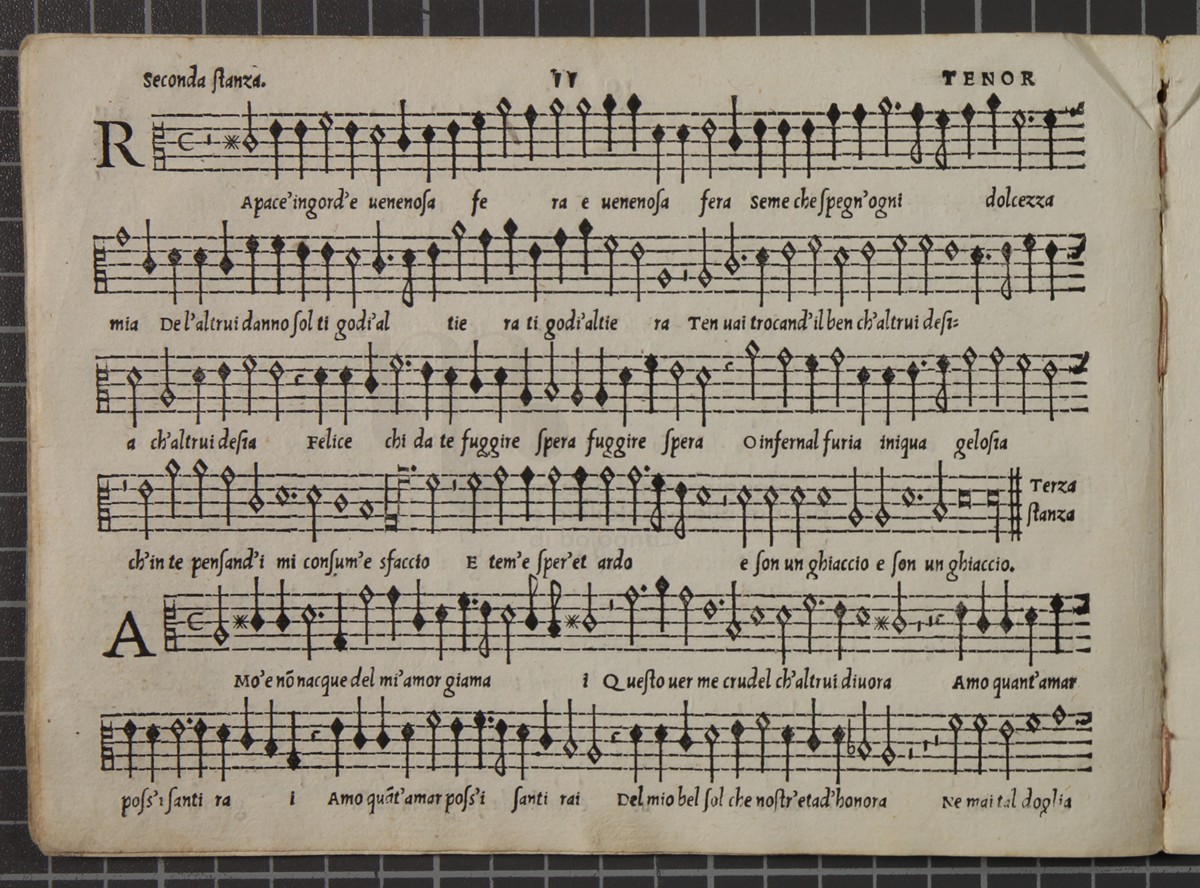 Seconda ſtanza. 11 TENOR
R
Apace'ingord'e uenenoſa fe ra e uenenoſa fera Seme che ſpegn'ogni dolcezza
mia De l'altrui danno ſol ti godi'al tie ra ti godi'altie ra Ten uai trocand'il ben ch'altrui deſi=
a ch'altrui deſia Felice chi da te fuggire ſpera fuggire ſpera O infernal furia iniqua geloſia
Terza
ſtanza
ch'in te penſand'i mi conſum'e sfaccio E tem'e ſper'et ardo e ſon un ghiaccio e ſon un ghiaccio.
A
Mo'e nō nacque del mi'amor giama i Queſto uer me crudel ch'altrui diuora Amo quant'amar
poſs'i ſanti ra i Amo quāt'amar poſs'i ſanti rai Del mio bel ſol che noſtr'etad'honora Ne mai tal doglia